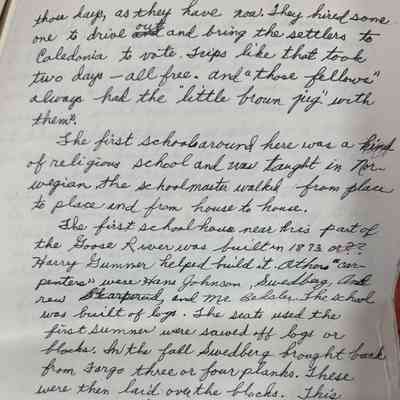 those days, as they have now. They hired some
one to drive out and bring the settlers to
Caledonia to vote. Trips like that took
two days — all free. and "those fellows"
always had the "little brown jug" with
them".
The first school around here was a kind
of religious school and was taught in Nor-
wegian the schoolmaster walked from place
to place and from house to house.
The first school house near his part of
the Goose River was built in 1873 or
Harry Gummer helped build it. Others "car-
penters" were Hans Johnson, Swedberg, And
rew and Mr. The school
was built of logs. The seats used the
first summer were sawed off logs or
blocks. In the fall Swedberg brought back
from Fargo three or four planks. These
were then laid over the blocks. This